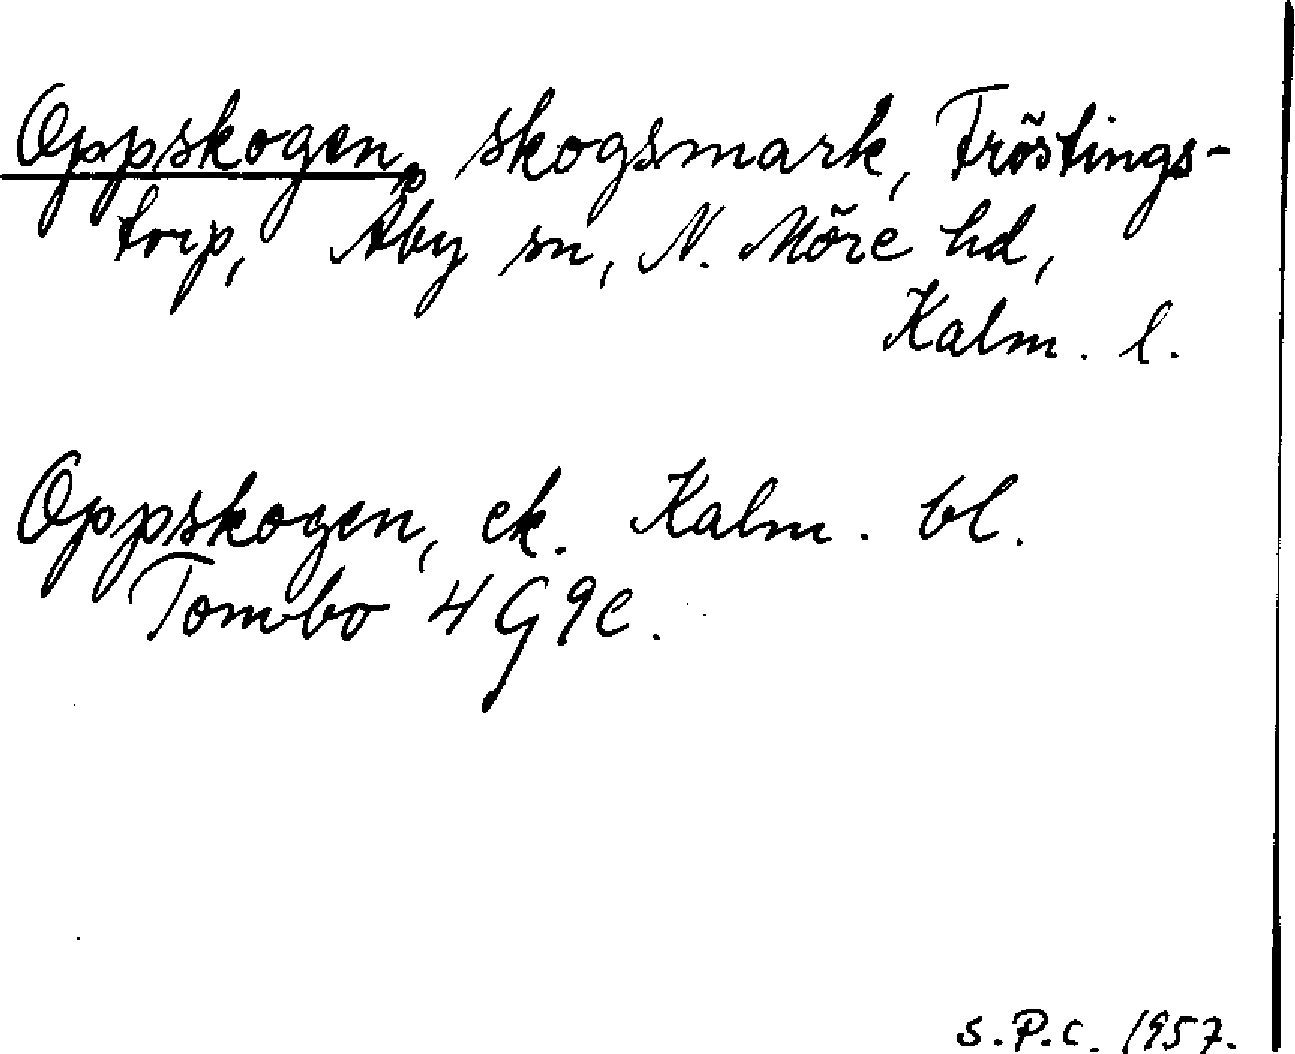 Oppskogen, skogsmark, Tröstings-
torp, Åby sn, N. Möre hd,
Kalm. l.
Oppskogen, ek. Kalm. bl.
Tombo 4G9c.
S.P.C. 1957.